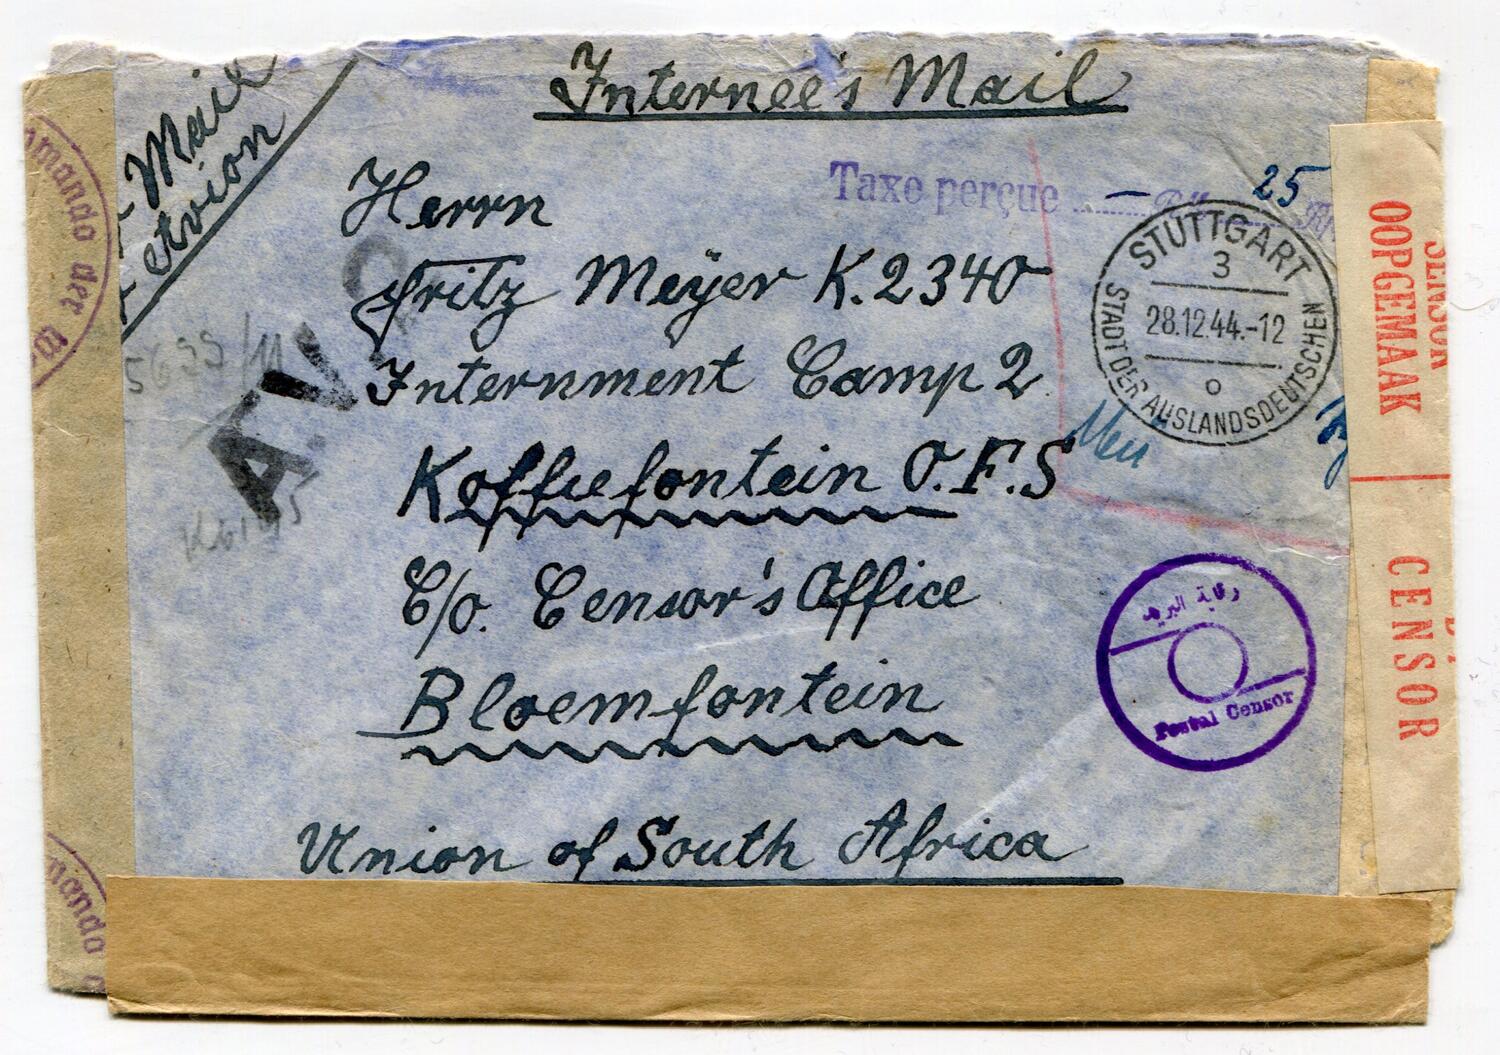 Internee's Mail
Mail
Avion
Taxe perçue — 25
Herrn
Fritz Meÿer K.2340
Internment Camp 2
Koffiefontein O.F.S
C/o. Censor's Office
Bloemfontein
Union of South Africa
STUTTGART
3
28.12.44.-12
o
STADT DER AUSLANDSDEUTSCHEN
A.V.2
5699/11
رقابة البريد
Postal Censor
OOPGEMAAK
SENSOR
CENSOR
mando der W
mando